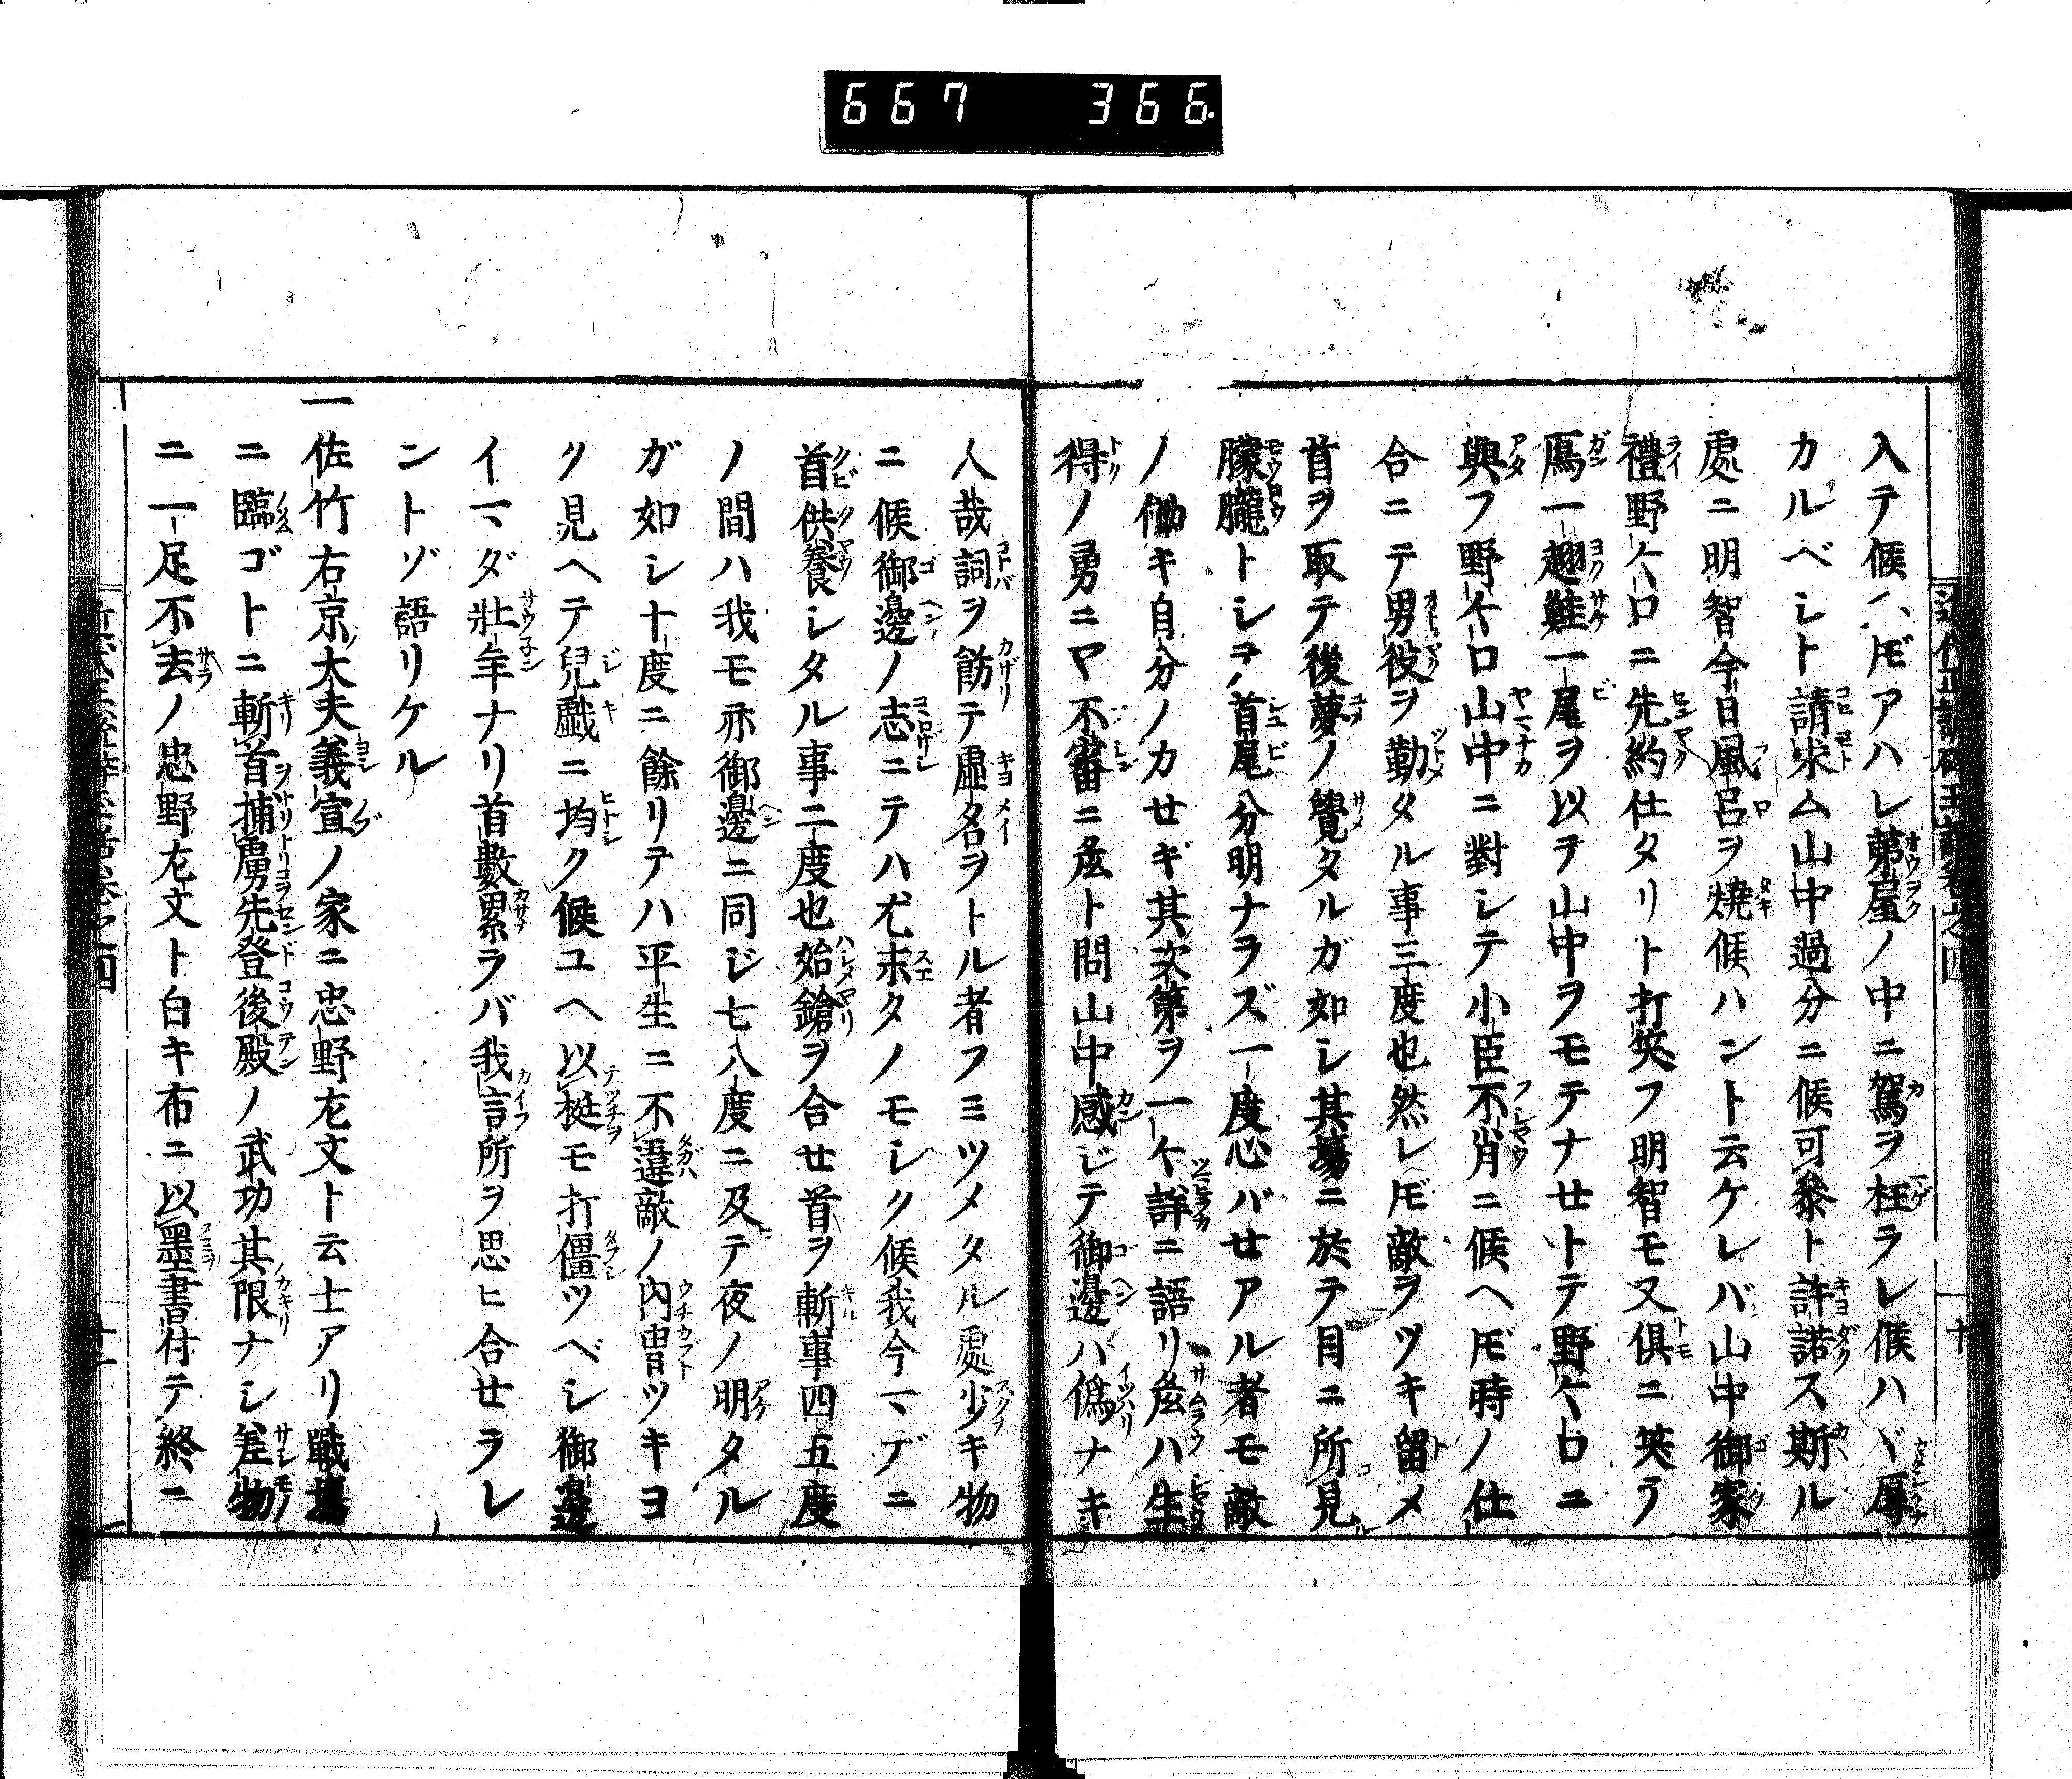 667 366
入テ候ヘ𪜈アハレ茅屋ノ中ニ駕ヲ枉ラレ候ハヾ辱
カルベシト請求ム山中過分ニ候可參ト許諾ス斯ル
處ニ明智今日風呂ヲ燒候ハント云ケレバ山中御家
禮野々口ニ先約仕タリト打笑フ明智モ又倶ニ笑ヲ
鴈一翅鮭一尾ヲ以テ山中ヲモテナセトテ野々口ニ
與フ野々口山中ニ對シテ小臣不肖ニ候ヘ𪜈時ノ仕
合ニテ男役ヲ勤タル事三度也然レ𪜈敵ヲツキ留メ
首ヲ取テ後夢ノ覺タルガ如シ其塲ニ於テ目ニ所見
朦朧トシテ首尾分明ナラズ一度心バセアル者モ敵
ノ働キ自分ノカセギ其次第ヲ一々詳ニ語リ侍ハ生
得ノ勇ニヤ不審ニ侍ト問山中感ジテ御邊ハ僞ナキ
人哉詞ヲ餝テ虛名ヲトル者フミツメタル處少キ物
ニ候御邊ノ志ニテハ尤末タノモシク候我今マデニ
首供養シタル事二度也始鎗ヲ合セ首ヲ斬事四五度
ノ間ハ我モ亦御邊ニ同ジ七八度ニ及テ夜ノ明タル
ガ如シ十度ニ餘リテハ平生ニ不違敵ノ內冑ツキヨ
ク見ヘテ兒戲ニ均ク候ユヘ以梃モ打僵ツベシ御邊
イマダ壯年ナリ首數累ラバ我言所ヲ思ヒ合セラレ
ントゾ語リケル
一佐竹右京大夫義宣ノ家ニ忠野左文ト云士アリ戰塲
ニ臨ゴトニ斬首捕虜先登後殿ノ武功其限ナシ差物
ニ一足不去ノ忠野左文ト白キ布ニ以墨書付テ終ニ